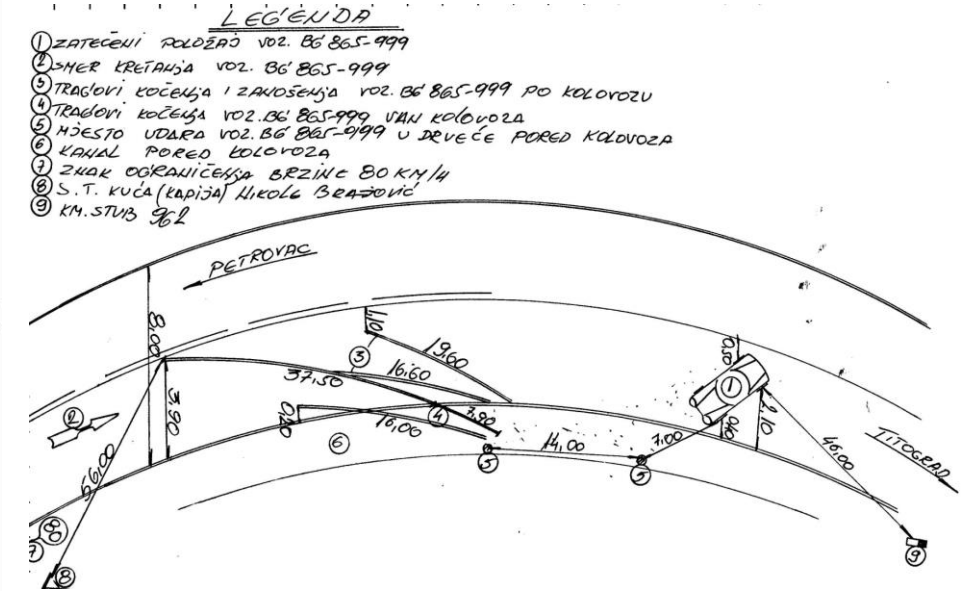 LEGENDA
① ZATEČENI POLOŽAJ VOZ. BG 865-999
② SMER KRETANJA VOZ. BG 865-999
③ TRAGOVI KOČENJA I ZANOŠENJA VOZ. BG 865-999 PO KOLOVOZU
④ TRAGOVI KOČENJA VOZ. BG 865-999 VAN KOLOVOZA
⑤ MJESTO UDARA VOZ. BG 865-999 U DRVEĆE PORED KOLOVOZA
⑥ KANAL PORED KOLOVOZA
⑦ ZNAK OGRANIČENJA BRZINE 80 KM/H
⑧ S.T. KUĆA (KAPIJA) NIKOLE BRAJOVIĆ
⑨ KM. STUB 962
PETROVAC
8,00
1,10
③
19,60
16,60
37,50
0,50
①
②
3,90
0,20
④
7,80
16,00
⑥
14,00
7,00
0,40
2,10
⑤
⑤
46,00
TITOGRAD
56,00
80
⑦
⑧
⑨